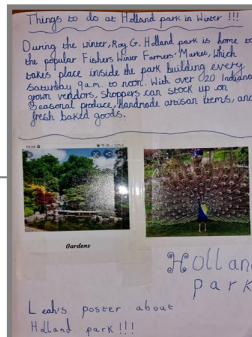 Things to do at Holland park in Winter !!!
During the winter, Roy G. Holland park is home to
the popular Fishers Winter Farmers' Market, which
takes place inside the park building every
Saturday 9 a.m. to noon. With over 20 Indiana
grown vendors, shoppers can stock up on
Seasonal produce, Handmade artisan items, and
fresh baked goods.
Gardens
Hollan
park
Leah's poster about
Holland park!!!